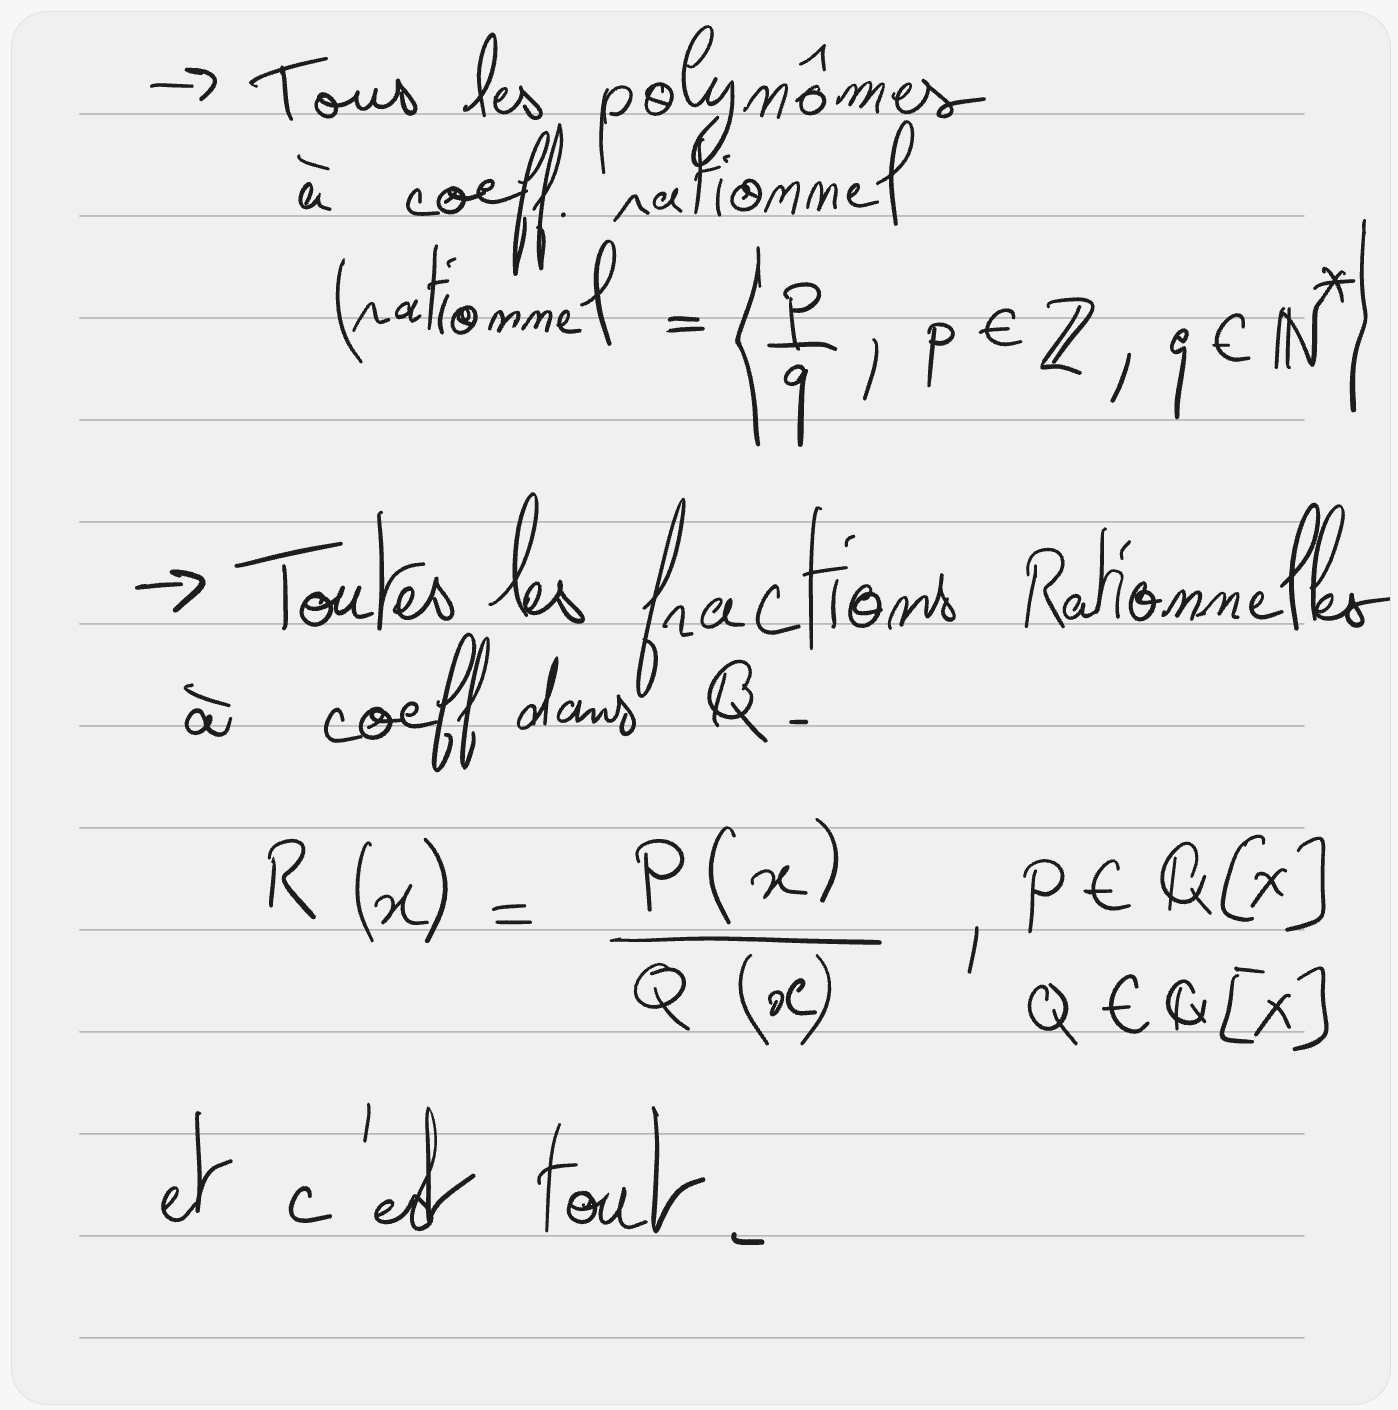 → Tous les polynômes
à coeff. rationnel
(rationnel = {p/q, p ∈ ℤ, q ∈ ℕ*}
→ Toutes les fractions Rationnelles
à coeff dans ℚ.
R(x) = P(x)/Q(x), P ∈ ℚ[X]
Q ∈ ℚ[X]
et c'est tout.